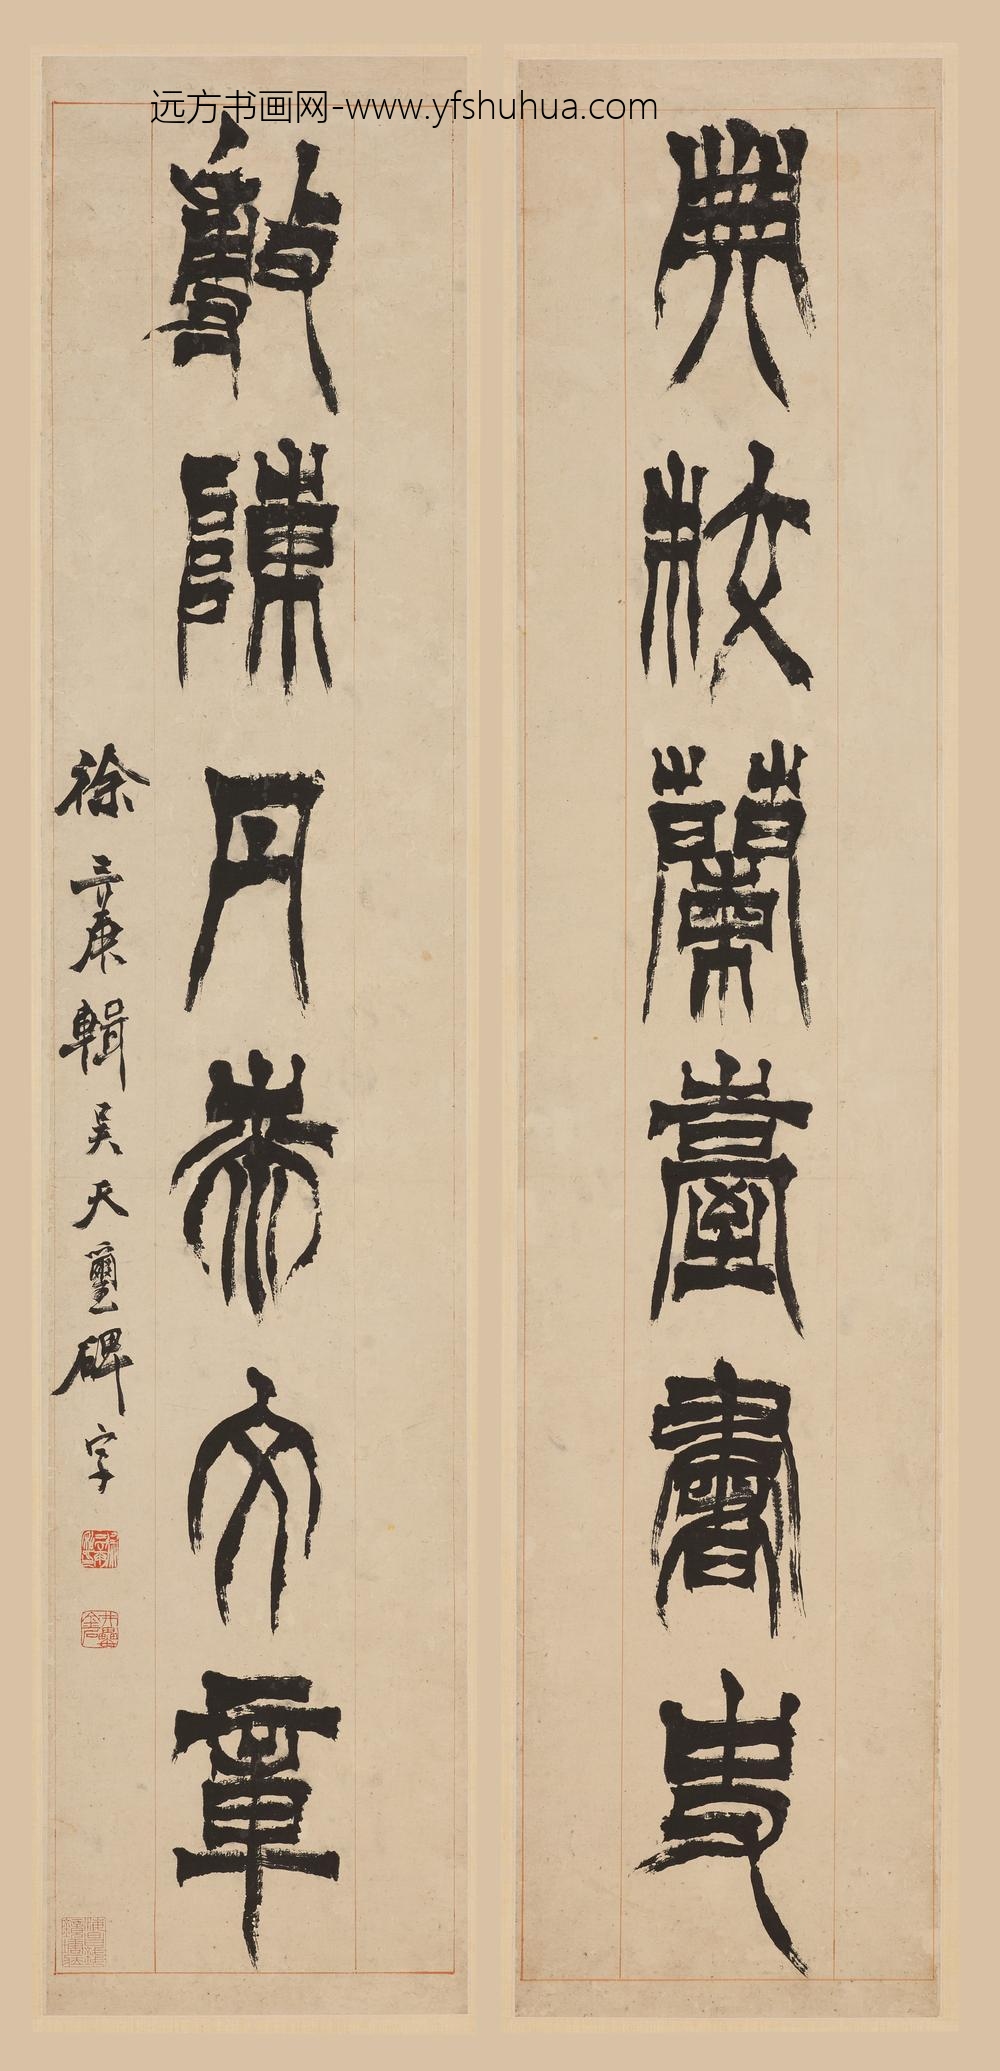 远方书画网-www.yfshuhua.com
典校蘭臺書史
敷陳丹㡿文章
徐三庚輯吴天璽碑字